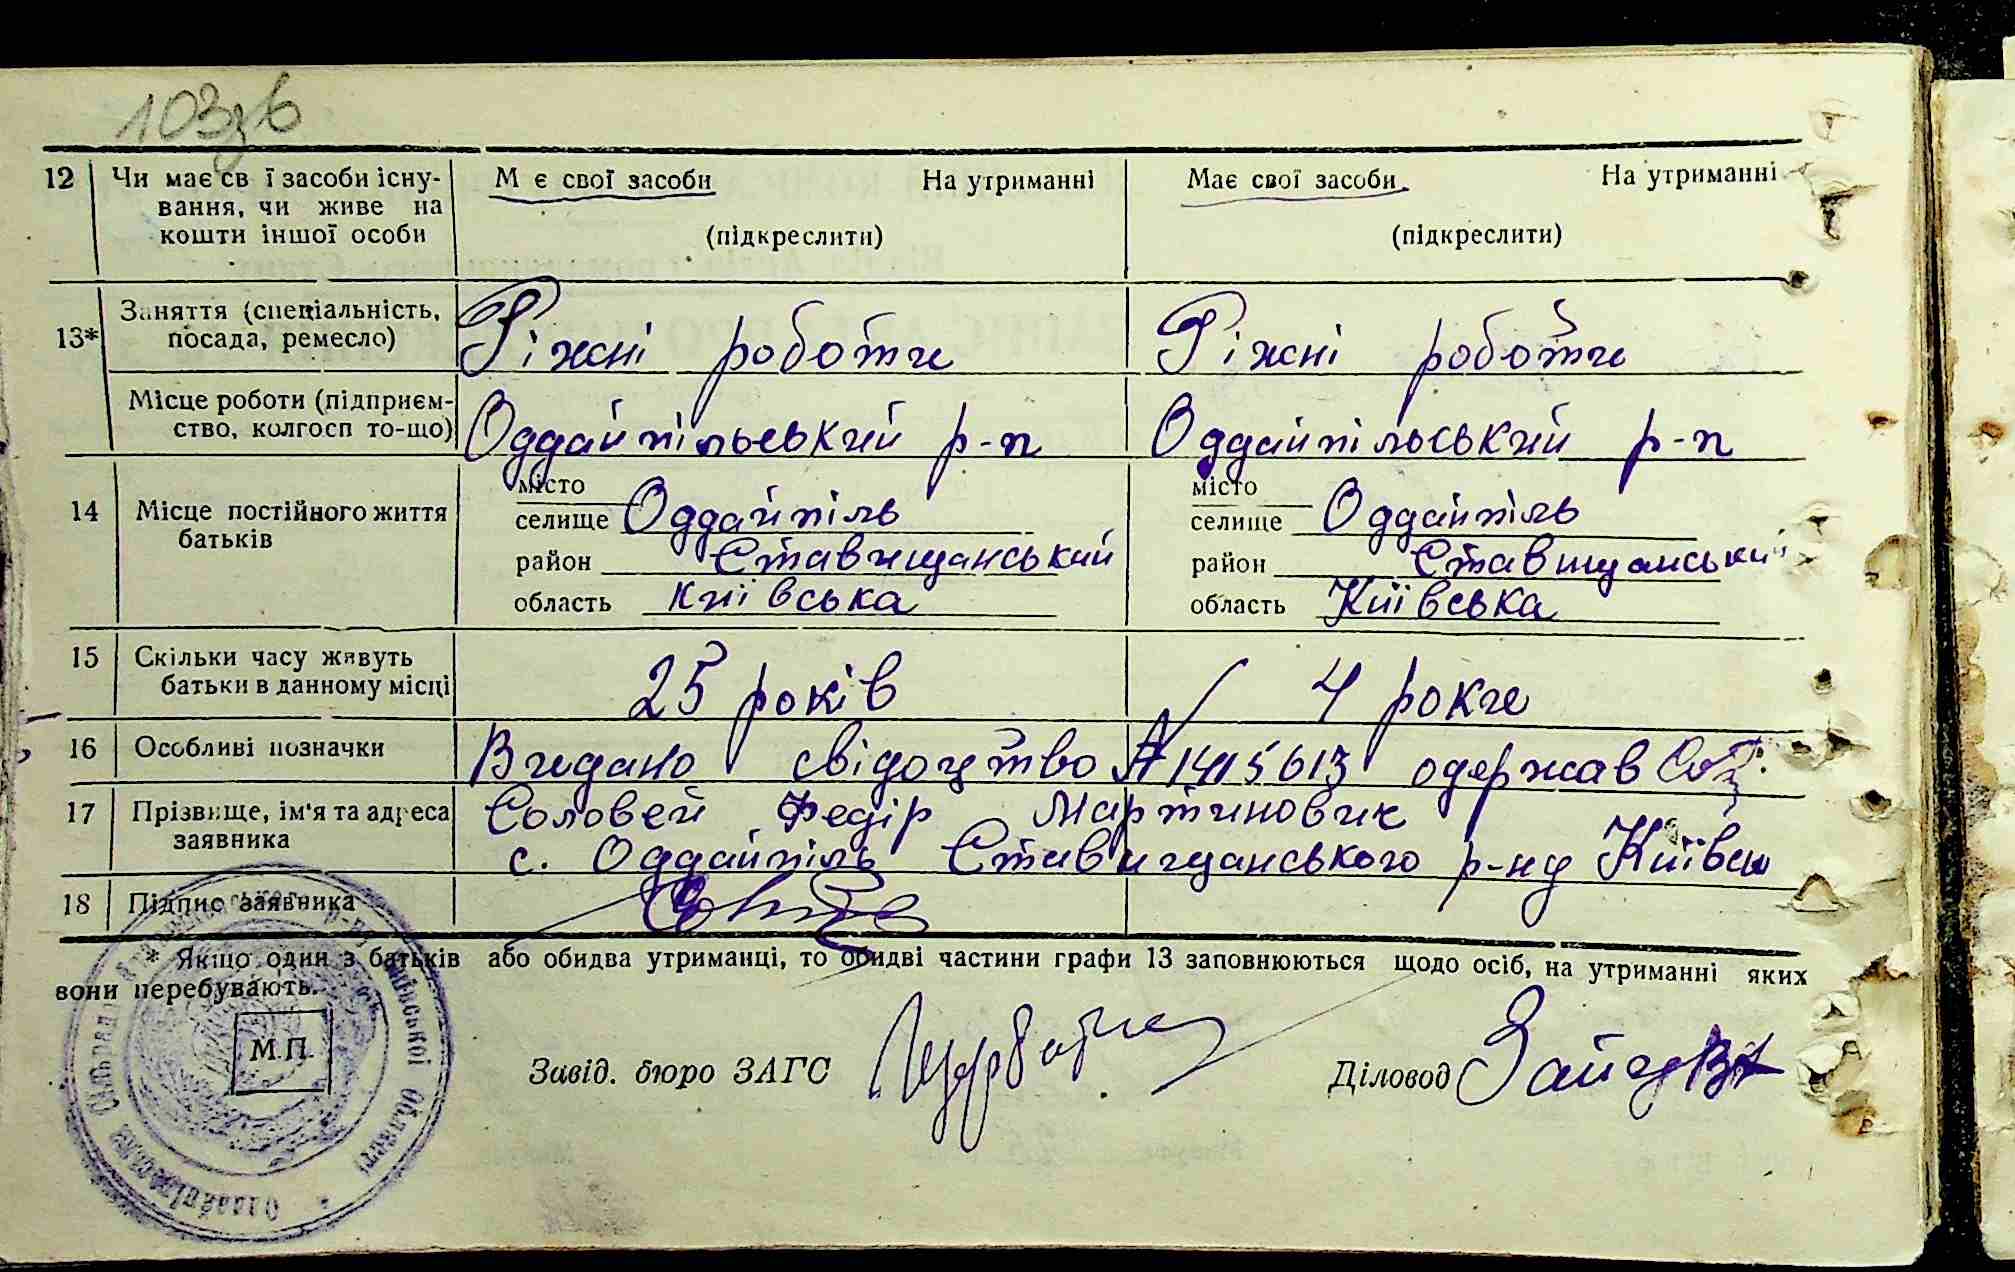 103зв
12 Чи має св ї засоби існу- М є свої засоби На утриманні Має свої засоби На утриманні
вання, чи живе на
кошти іншої особи (підкреслити) (підкреслити)
13* Заняття (спеціальність,
посада, ремесло) Ріжні роботи Ріжні роботи
Місце роботи (підприєм-
ство, колгосп то-що) Оддайпільський р-п Оддайпільський р-п
місто місто
14 Місце постійного життя селище Оддайпіль селище Оддайпіль
батьків район Ставищанський район Ставищанський
область Київська область Київська
15 Скільки часу живуть
батьки в данному місці 25 років 4 роки
16 Особливі позначки Видано свідоцтво А 1415613 одержав
17 Прізвище, ім'я та адреса Соловей Федір Мартинович
заявника с. Оддайпіль Ставищанського р-ну Київсь
18 Підпис заявника
* Якщо один з батьків або обидва утриманці, то обидві частини графи 13 заповнюються щодо осіб, на утриманні яких
вони перебувають.
М.П.
Завід. бюро ЗАГС Діловод
Оддайпільська Сільрада Київської області